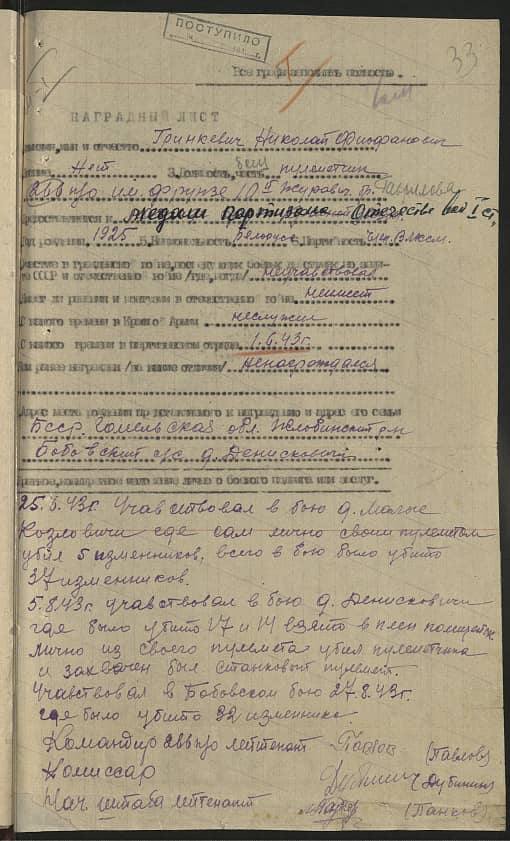 ПОСТУПИЛО
33
Все графы заполнять полностью.
НАГРАДНЫЙ ЛИСТ
имя и отчество Гринкевич Николай Феофанович
Звание Нет 3. Должность, часть боец пулеметчик
им. Фрунзе
Представляется к медали Партизана Отечествен. I ст.
Год рождения 1925 5. Национальность Белорус 6. Партийность чл. ВЛКСМ.
Участие в гражданской войне, последующих боевых действиях по защите
СССР и отечественной войне /где, когда/ неучавствовал
Имеет ли ранения и контузии в отечественной войне неимеет
С какого времени в Красной Армии неслужил
С какого времени в партизанском отряде 1.6.43г.
Чем ранее награжден /за какие отличия/ Ненаграждался
Адрес места рождения представляемого к награждению и адрес его семьи
БССР Гомельская обл. Жлобинский р-н
Бобовский с/с д. Денисковичи
краткое, конкретное изложение личного боевого подвига или заслуг.
Учавствовал в бою д. Малые
Козловичи где сам лично своим пулеметом
убил 5 изменников, всего в бою было убито
37 изменников.
5.8.43г. учавствовал в бою д. Денисковичи
где было убито 17 и 14 взято в плен полицейск.
лично из своего пулемета убил пулеметчика
и захвачен был станковый пулемет.
Учавствовал в Бобовском бою 27.8.43г.
где было убито 32 изменника.
Командир лейтенант (Павлов)
Комиссар (Дубинин)
Нач. штаба лейтенант (Панков)